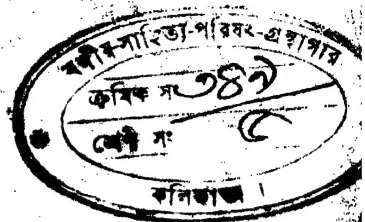 বঙ্গীয়-সাহিত্য-পরিষৎ-গ্রন্থাগার
ক্রমিক সং ৩৪৯
শ্রেণী সং ৫
কলিকাতা ।